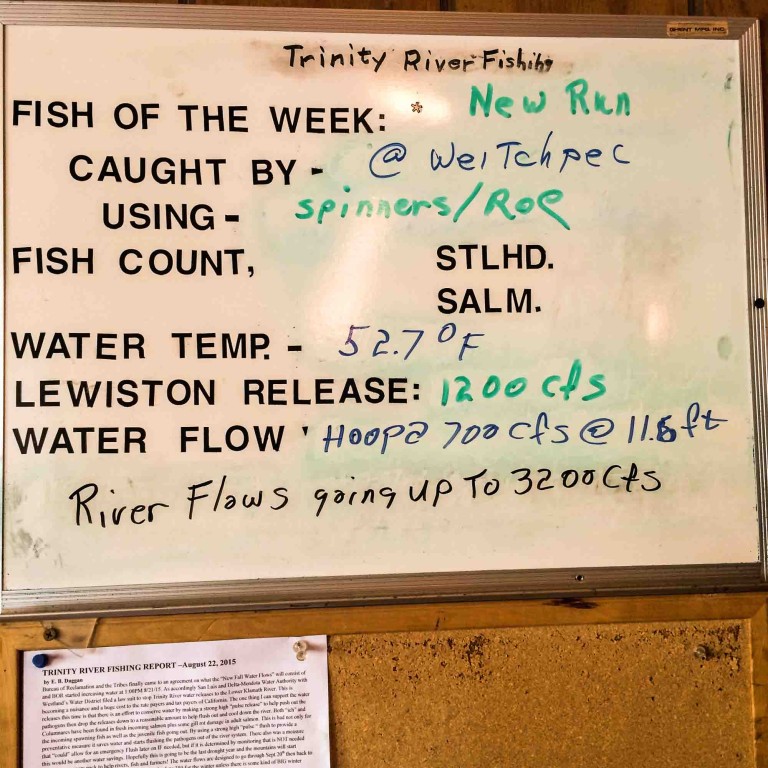 Trinity River Fishing
FISH OF THE WEEK: * New Run
CAUGHT BY - @ WeiTchpec
USING - spinners/Roe
FISH COUNT, STLHD.
SALM.
WATER TEMP. - 52.7°F
LEWISTON RELEASE: 1200 cfs
WATER FLOW ' Hoopa 700 cfs @ 11.6 ft
River Flows going up To 3200 Cfs
TRINITY RIVER FISHING REPORT –August 22, 2015
by E. B. Duggan
Bureau of Reclamation and the Tribes finally came to an agreement on what the "New Fall Water Flows" will consist of
and BOR started increasing water at 1:00PM 8/21/15. As accordingly San Luis and Delta-Mendota Water Authority with
Westland's Water District filed a law suit to stop Trinity River water releases to the Lower Klamath River. This is
becoming a nuisance and a huge cost to the rate payers and tax payers of California. The one thing I can support the water
releases this time is that there is an effort to conserve water by making a strong high "pulse release" to help push out the
pathogens then drop the releases down to a reasonable amount to help flush out and cool down the river. Both "ich" and
Columnares have been found in fresh incoming salmon plus some gill rot damage in adult salmon. This is bad not only for
the incoming spawning fish as well as the juvenile fish going out. By using a strong high "pulse" flush to provide a
preventative measure it saves water and starts flushing the pathogens out of the river system. There also was a measure
that "could" allow for an emergency Flush later on IF needed, but if it is determined by monitoring that is NOT needed
this would be another water savings. Hopefully this is going to be the last drought year and the mountains will start
to help rivers, fish and farmers! The water flows are designed to go through Sept 20th then back to
for the winter unless there is some kind of BIG winter